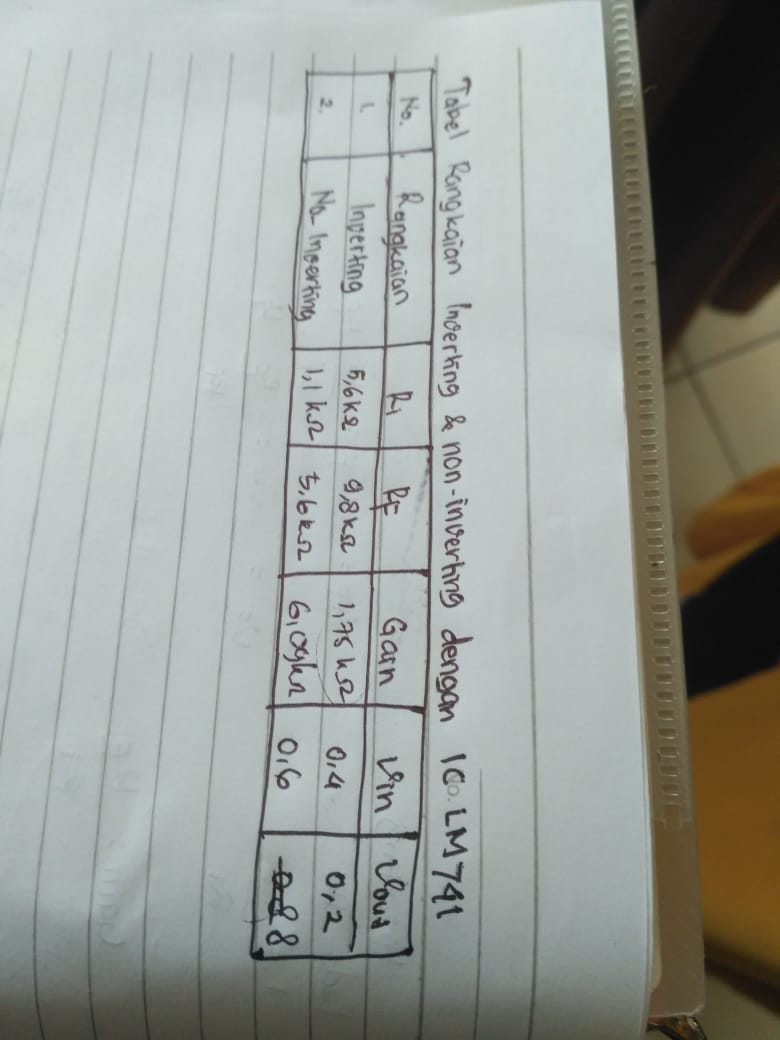 Tabel Rangkaian Inverting & non-inverting dengan IC LM741
No. Rangkaian R1 RF Gain Vin Vout
1. Inverting 5,6kΩ 9,8kΩ 1,75kΩ 0,4 0,2
2. No- Inverting 1,1kΩ 5,6kΩ 6,09kΩ 0,6 8